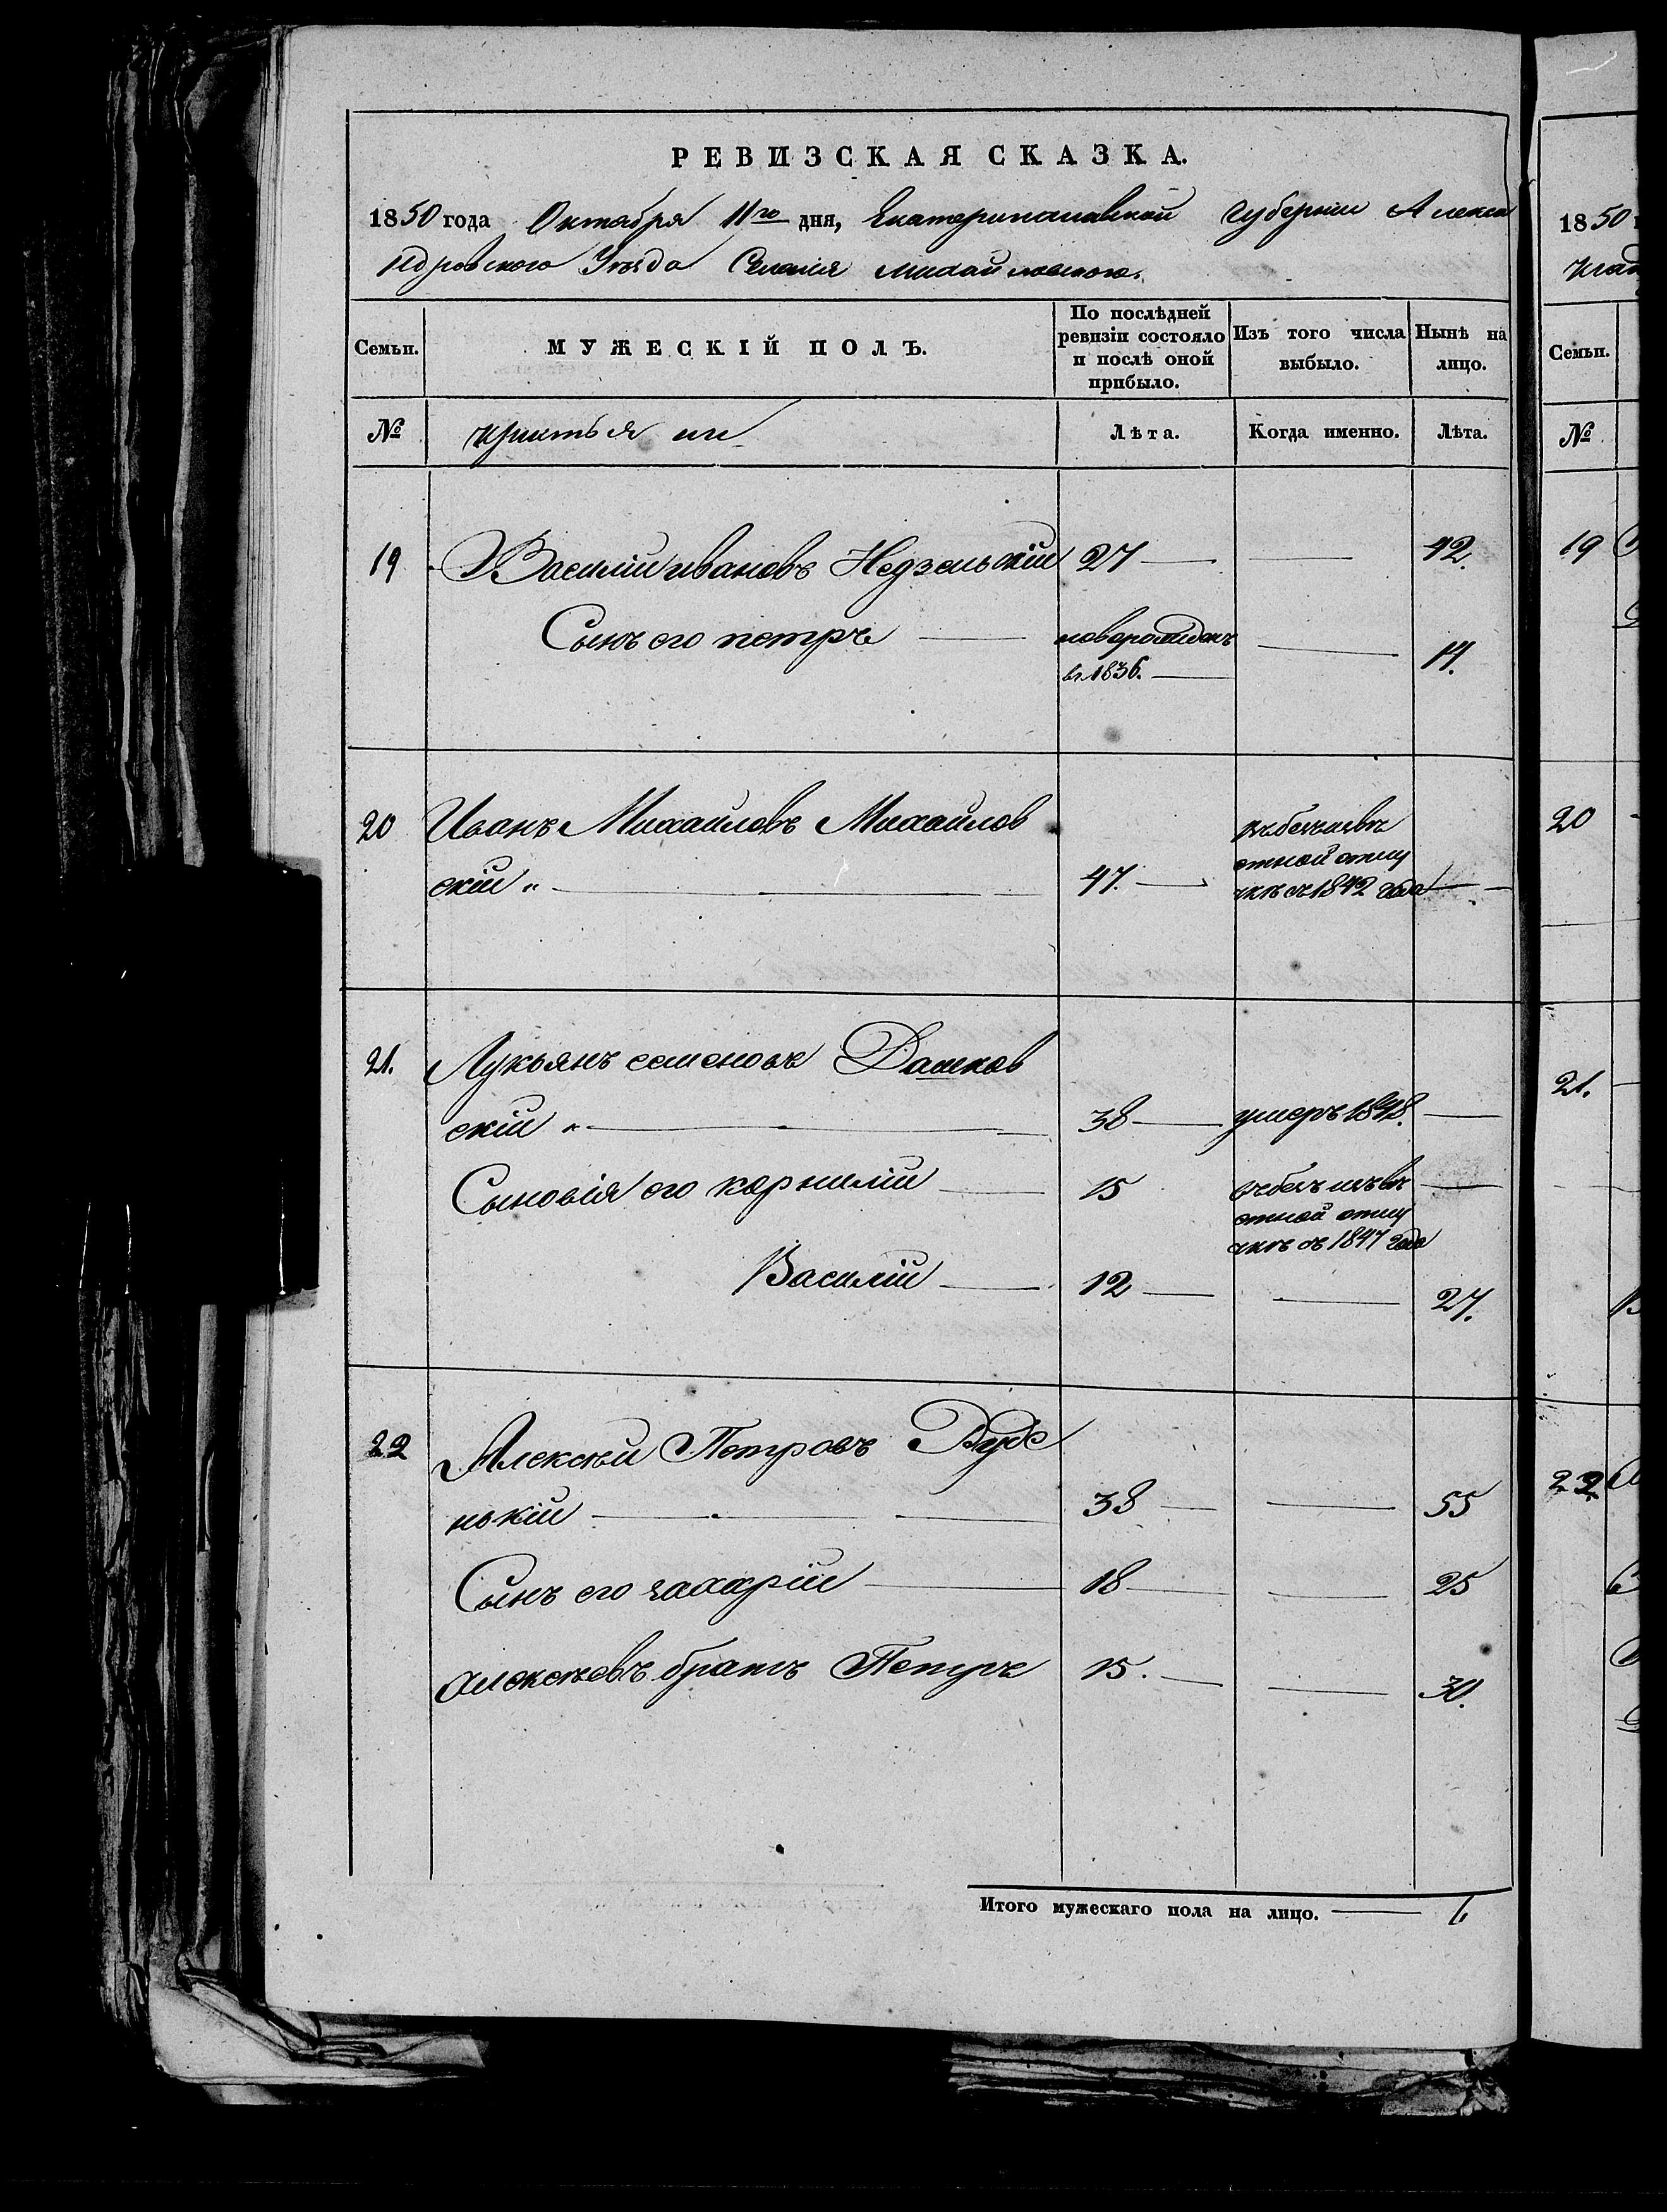 РЕВИЗСКАЯ СКАЗКА.
1850 года Октября 11го дня, Екатеринославской Губернии Алекса
ндровского Уѣзда Селенія Михайловского.
Семьи.
МУЖЕСКІЙ ПОЛЪ.
По послѣдней ревизіи состояло и послѣ оной прибыло.
Изъ того числа выбыло.
Нынѣ на лицо.
№
Лѣта.
Когда именно.
Лѣта.
19 Василій ивановъ Недзельскій 27 42.
Сынъ его петръ новорожденъ 14.
въ 1836.
20 Иванъ Михайловъ Михайлов
скій 47. въ безъизвѣ
стной отлу
чкѣ съ 1842 года
21. Лукьянъ семеновъ Дашков
скій 38 умеръ 1848.
Сыновія его корнилій 15 въ безъизвѣ
стной отлу
чкѣ съ 1847 года
Василій 12 27.
22 Алексѣй Петровъ Руде
нькій 38 55
Сынъ его захарій 18 25
алексѣевъ братъ Петръ 15. 30.
Итого мужескаго пола на лицо.
1850
Семьи.
№
19
20
21.
22